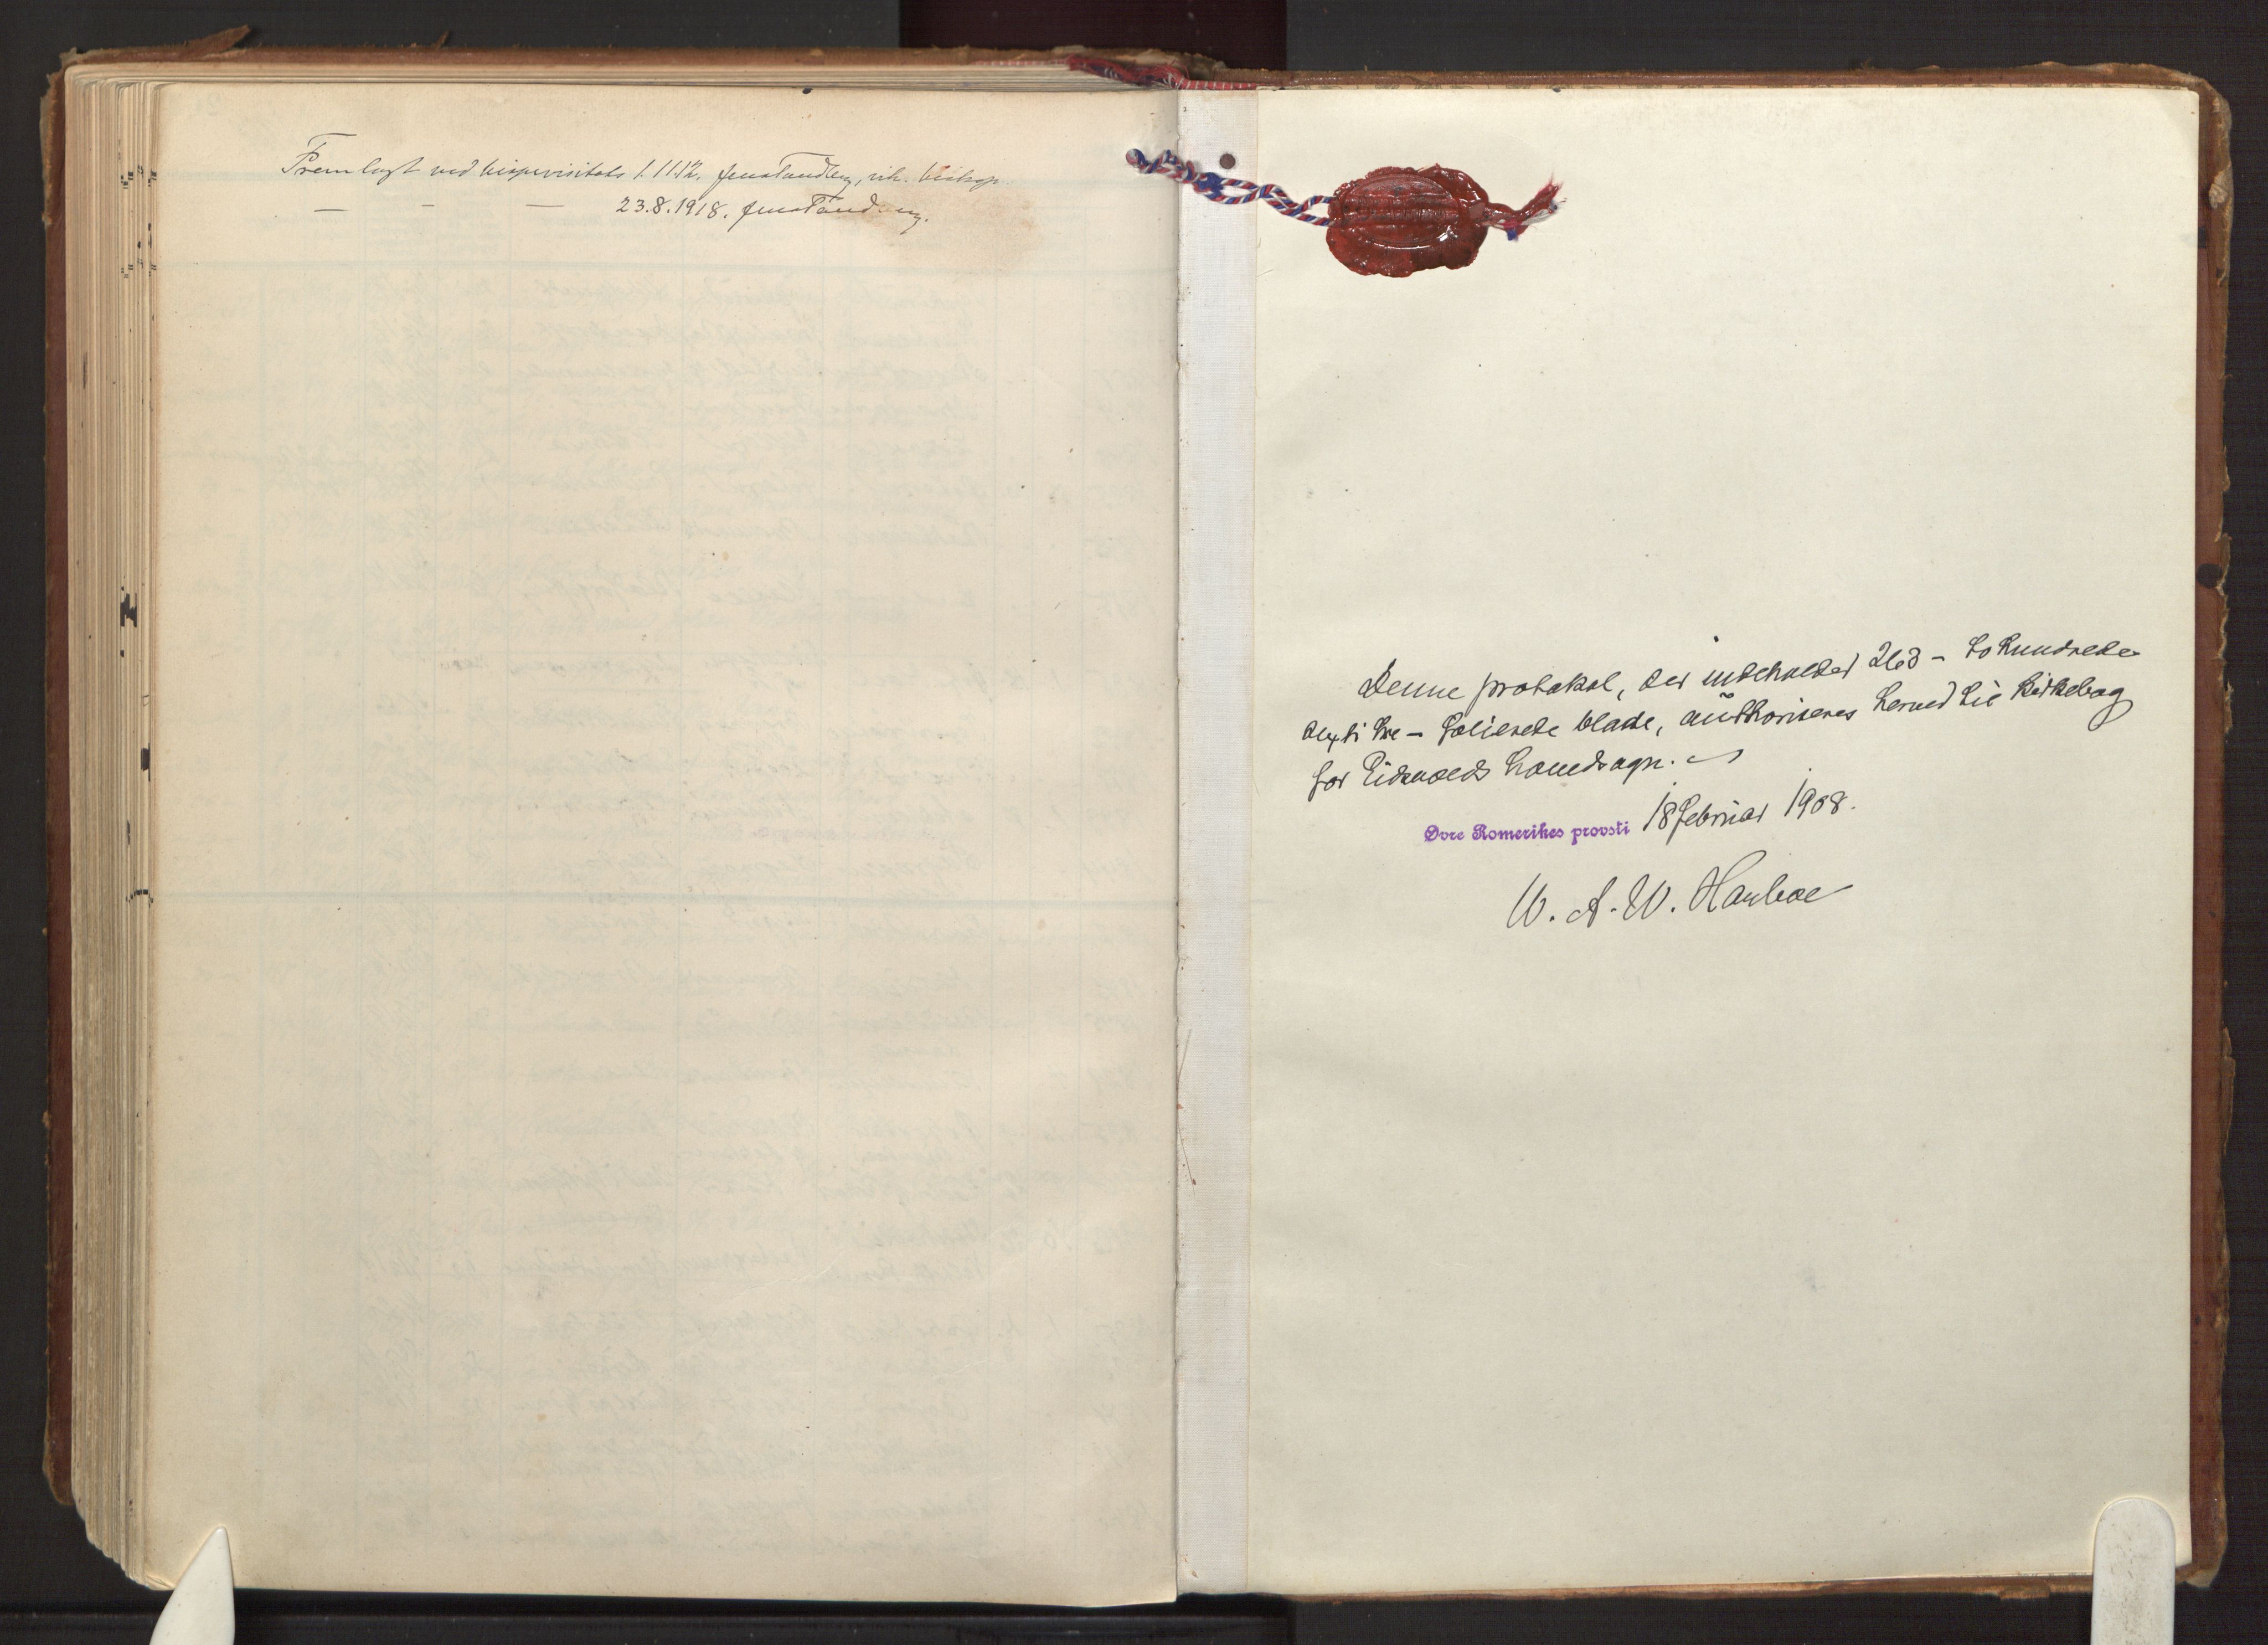 Fremlagt ved bispevisitats 1. 11 12. Jens Tandberg, vik. biskop.
— - — 23.8.1918. Jens Tandberg.
Denne protokol, der indeholder 263 - to hundrede
sexti tre - folierede blade, authoriseres herved til kirkebog
for Eidsvolds hovedsogn.
Øvre Romerikes provsti 18 februar 1908.
W. A. W. Hauboe